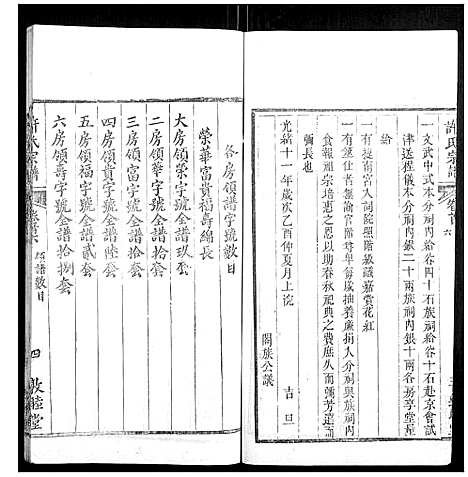 許氏宗譜
卷首
六
一文武中式本分祠給谷四十石族祠給谷十石赴京會試
津送程儀本分祠內銀二十兩族祠內銀十兩有房亭堂
給
一有捷南宮入詞院照階級議嘉賞花紅
一有筮仕省職官俸各宜抽養廉捐入本分祠與族祠以
食報祖宗培恵之恩以助春秋祀典之費庶久而彌芳遠而
彌長也
光緒十一年歲次乙酉仲夏月上浣
吉旦
闔族公議
各房領譜字號數目
榮華富貴福壽綿長
大房領榮字號全譜玖套
二房領華字號全譜拾套
三房領富字號全譜拾套
四房領貴字號全譜陸套
五房領福字號全譜貳套
六房領壽字號全譜拾捌套
許氏宗譜
卷首
領譜數目
四
敦睦堂